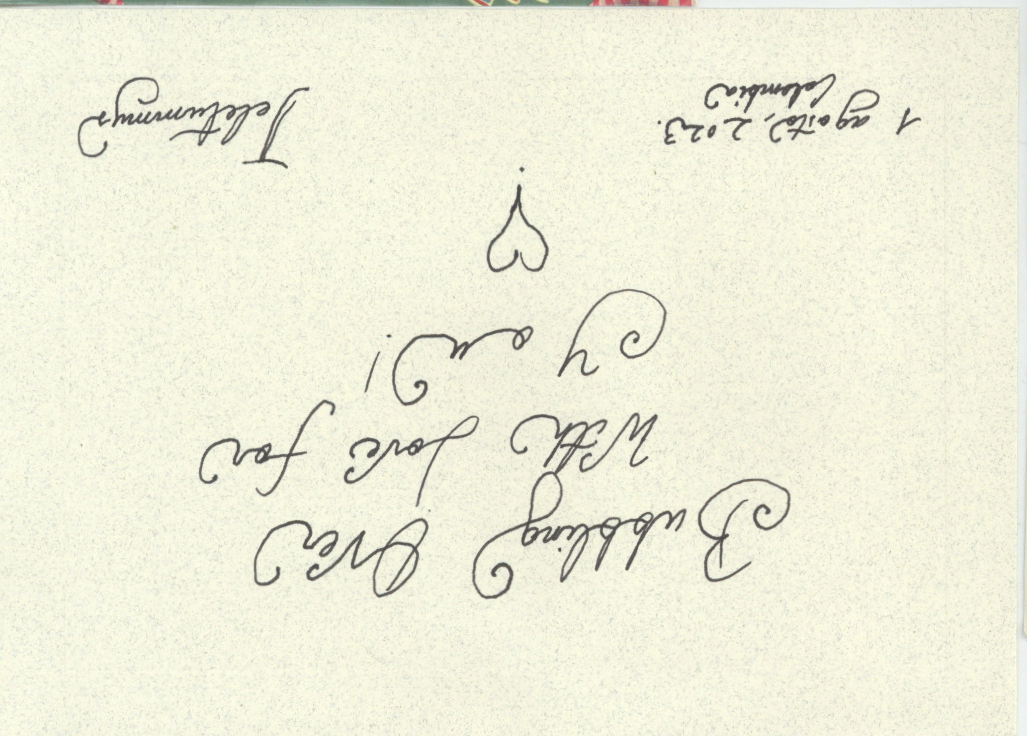 Bubbling Over
With Love for
You!
1 agosto, 2023.
Colombia
Teletummys